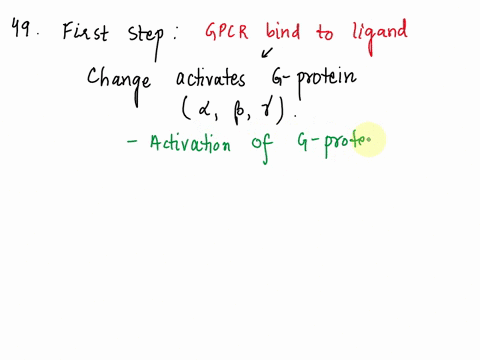 49. First Step: GPCR bind to ligand
Change activates G-protein
(α, β, γ).
- Activation of G-prote